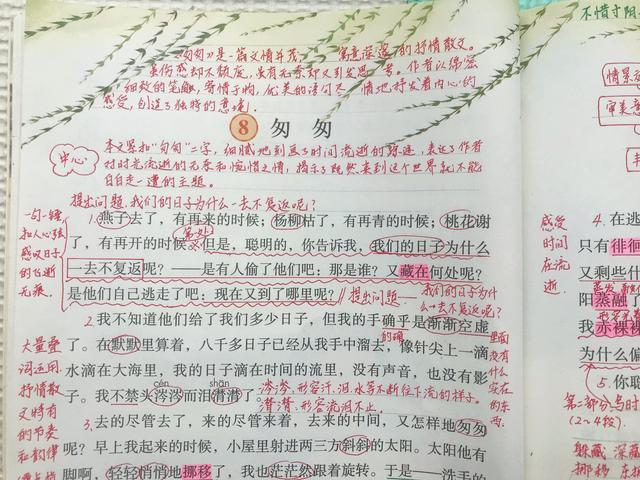 《匆匆》是一篇文情并茂, 寓意深邃的抒情散文。
虽伤感却不颓废,虽有无奈却又引发思考。作者以绵密
细致的笔触,寄情于物,优美的语句尽情地抒发着内心的
感受,创造了独特的意境。
不惜寸阴
8 匆匆
中心
本文紧扣"匆匆"二字,细腻地刻画了时间流逝的踪迹,表达了作者
对时光流逝的无奈和惋惜之情,揭示了既然来到这个世界就不能
白白走一遭的主题。
提出问题:我们的日子为什么一去不复返呢?
1.燕子去了,有再来的时候;杨柳枯了,有再青的时候;桃花谢
了,有再开的时候。但是,聪明的,你告诉我,我们的日子为什么
一去不复返呢?——是有人偷了他们吧:那是谁?又藏在何处呢?
是他们自己逃走了吧:现在又到了哪里呢?
提出问题——我们的日子为什
么一去不复返呢?
2.我不知道他们给了我们多少日子,但我的手确乎是渐渐空虚
的确
了。在默默里算着,八千多日子已经从我手中溜去,像针尖上一滴
水滴在大海里,我的日子滴在时间的流里,没有声音,也没有影
cén shān
子。我不禁头涔涔而泪潸潸了。
涔涔:形容汗、泪、水等不断往下流的样子。
潸潸:形容流泪不止。
里面
没有
什么
实在
的东
西
3.去的尽管去了,来的尽管来着,去来的中间,又怎样地匆匆
呢?早上我起来的时候,小屋里射进两三方斜斜的太阳。太阳他有
脚啊,轻轻悄悄地挪移了,我也茫茫然跟着旋转。于是——洗手的
扣人心弦
感叹日子
的飞逝
无痕。
大量叠
词运用,
抒情散
文特有
的节奏
和韵律
感受
时间
在流
逝
情景
审美意
4.在逃
只有徘徊
又剩些什
阳蒸融了
我赤裸裸
为什么偏
5.你聪
第二部分
(2~4段)
躲藏 深藏
挪移